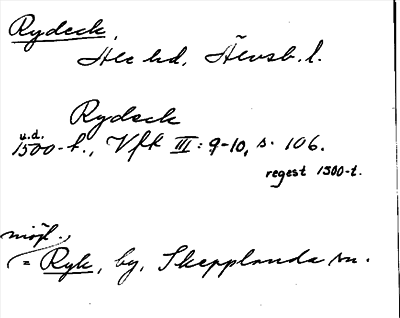 Rydeck,
Ale hd, Älvsb. l.
Rydeck
u.d.
1500-t., Vfk III: 9-10, s. 106.
regest 1300-t.
möjl.
= Ryk, by, Skepplanda sn.